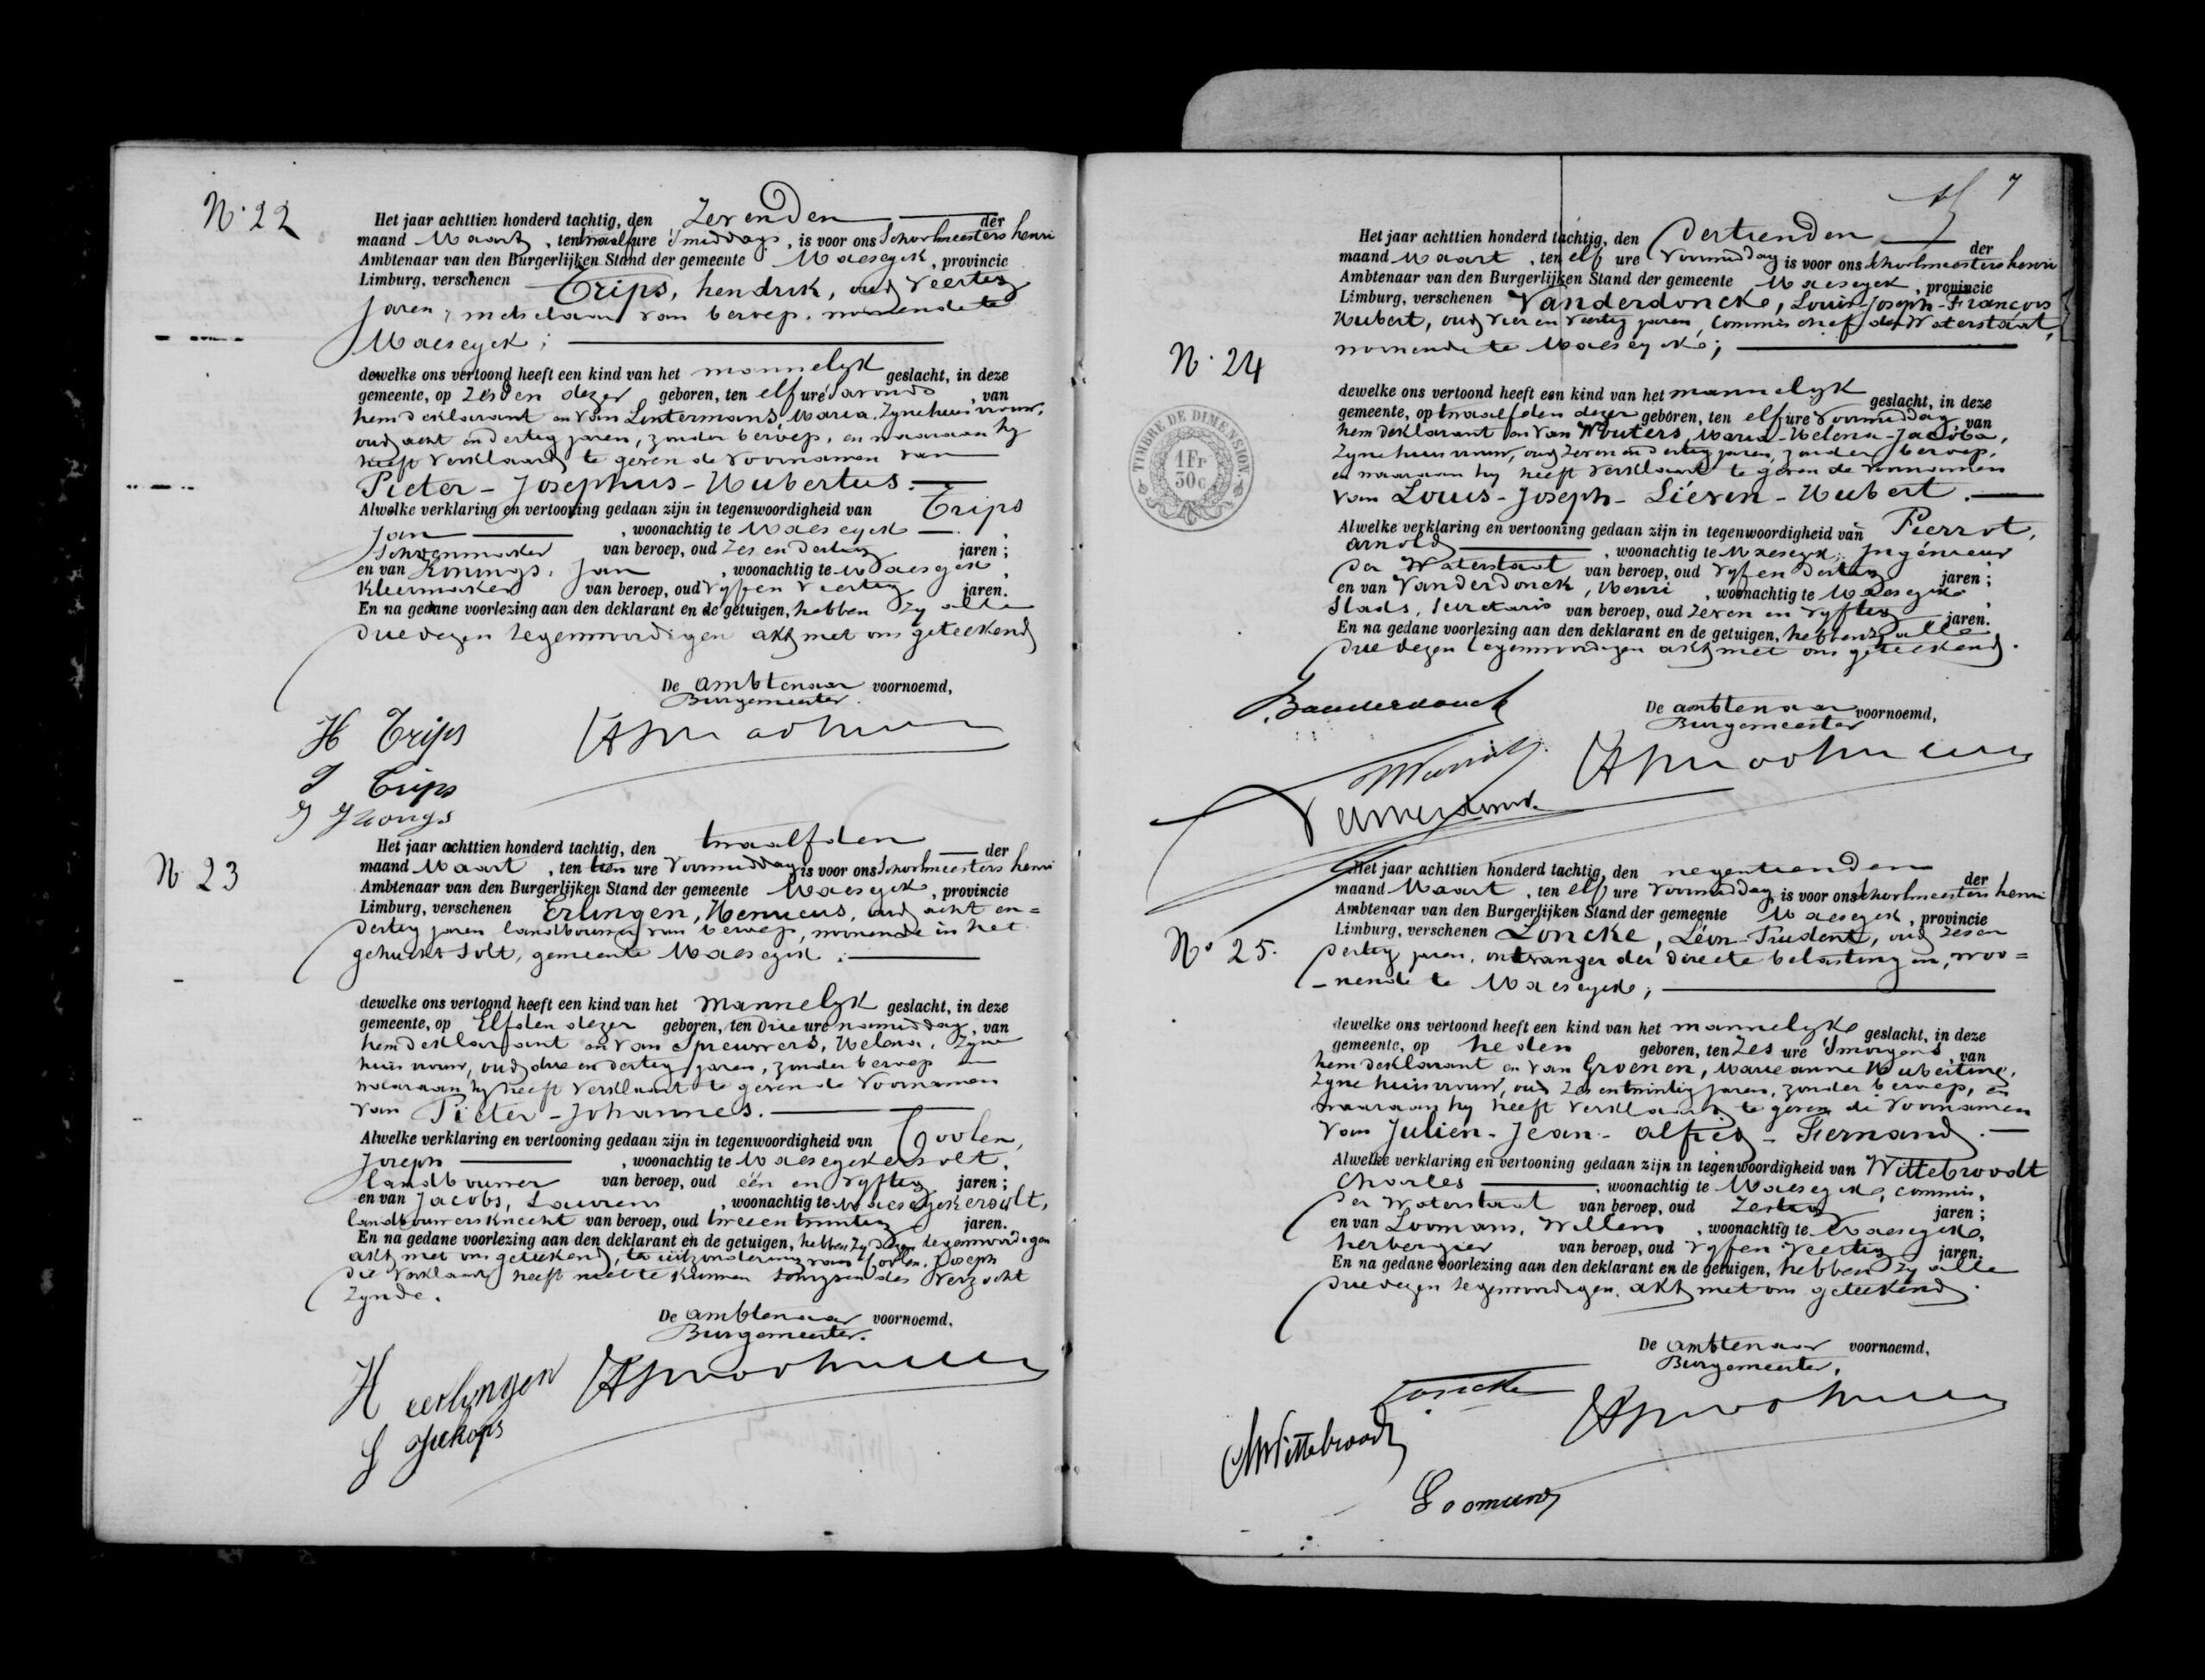 N. 22
Het jaar achttien honderd tachtig, den Zevenden der
maand Maart, ten twaalf ure 's middags, is voor ons Schoolmeesters henri
Ambtenaar van den Burgerlijken Stand der gemeente Maeseyck, provincie
Limburg, verschenen Trips, hendrik, oud veertig
jaren, metselaar van beroep, woonende te
Maeseyck;
dewelke ons vertoond heeft een kind van het mannelyk geslacht, in deze
gemeente, op Zesden dezer geboren, ten elf ure 's avonds, van
hem deklarant en van Lintermans, Maria, Zyne huisvrouw,
oud acht en dertig jaren, zonder beroep, en waaraan hy
heeft verklaard te geven de voornamen van
Pieter - Josephus - Hubertus.
Alwelke verklaring en vertooning gedaan zijn in tegenwoordigheid van Trips
Jan, woonachtig te Maeseyck
Schoenmaker van beroep, oud Zes en dertig jaren;
en van Konings, Jan, woonachtig te Maeseyck,
Kleermaker van beroep, oud vyf en veertig jaren.
En na gedane voorlezing aan den deklarant en de getuigen, hebben zy alle
drie dezen tegenwoordigen akt met ons geteekend
De ambtenaar voornoemd,
Burgemeester.
H Trips
J Trips
N 23
Het jaar achttien honderd tachtig, den twaalfden der
maand Maart, ten tien ure voormiddag is voor ons Schoolmeesters henri
Ambtenaar van den Burgerlijken Stand der gemeente Maeseyck, provincie
Limburg, verschenen Erlingen, Henricus, oud acht en=
dertig jaren landbouwer van beroep, woonende in het
gehucht Solt, gemeente Maeseyck;
dewelke ons vertoond heeft een kind van het Mannelyk geslacht, in deze
gemeente, op Elfden dezer geboren, ten drie ure namiddag, van
hem deklarant en van Spreuwers, Helena, Zyne
huisvrouw, oud drie en dertig jaren, zonder beroep en
waaraan hy heeft verklaard te geven de voornamen
van Pieter - Johannes.
Alwelke verklaring en vertooning gedaan zijn in tegenwoordigheid van Goolen,
Joseph, woonachtig te Maeseyckersolt,
landbouwer van beroep, oud één en vyftig jaren;
en van Jacobs, Laurens, woonachtig te Maeseyckersolt,
landbouwersknecht van beroep, oud twee en twintig jaren.
En na gedane voorlezing aan den deklarant en de getuigen, hebben zy dezen tegenwoordigen
akt met ons geteekend, te uitzondering van Goolen, Joseph
die verklaard heeft niet te kunnen schryven des verzocht
Zynde.
De ambtenaar voornoemd,
Burgemeester.
H eerlingen
J Jakops
7
N. 24
Het jaar achttien honderd tachtig, den Dertienden der
maand Maart, ten elf ure voormiddag is voor ons Schoolmeesters henri
Ambtenaar van den Burgerlijken Stand der gemeente Maeseyck, provincie
Limburg, verschenen Vanderdoncke, Louis-Joseph-François
Hubert, oud vier en veertig jaren, Commis chef der Waterstaat,
woonende te Maeseyck;
TIMBRE DE DIMENSION.
1 Fr
50 c
dewelke ons vertoond heeft een kind van het mannelyk geslacht, in deze
gemeente, op twaalfden dezer geboren, ten elf ure voormiddag, van
hem deklarant en van Wouters, Maria-Helena-Jacoba,
Zyne huisvrouw, oud Zeven en dertig jaren, zonder beroep,
en waaraan hy heeft verklaard te geven de voornamen
van Louis - Joseph - Liéven - Hubert.
Alwelke verklaring en vertooning gedaan zijn in tegenwoordigheid van Pierrot,
Arnold, woonachtig te Maeseyck, Ingénieur
der Waterstaat van beroep, oud vyf en dertig jaren;
en van Vanderdonck, Henri, woonachtig te Maeseyck
Stads, Secretaris van beroep, oud Zeven en vyftig jaren.
En na gedane voorlezing aan den deklarant en de getuigen, hebben zy alle
drie dezen tegenwoordigen akt met ons geteekend.
De ambtenaar voornoemd,
Burgemeester
N° 25.
Het jaar achttien honderd tachtig, den negentienden der
maand Maart, ten elf ure voormiddag, is voor ons Schoolmeesters henri
Ambtenaar van den Burgerlijken Stand der gemeente Maeseyck, provincie
Limburg, verschenen Loncke, Léon-Prudent, oud Zes en
dertig jaren, ontvanger der directe belasting en, woo=
-nende te Maeseyck;
dewelke ons vertoond heeft een kind van het mannelyke geslacht, in deze
gemeente, op heden geboren, ten Zes ure 's morgens, van
hem deklarant en van Groenen, Marie anne Hubertine,
Zyne huisvrouw, oud Zes en twintig jaren, zonder beroep, en
waaraan hy heeft verklaard te geven de voornamen
van Julien - Jean - Alfred - Fernand.
Alwelke verklaring en vertooning gedaan zijn in tegenwoordigheid van Wittebroodt
Charles, woonachtig te Maeseyck, commis,
der Waterstaat van beroep, oud Zestig jaren;
en van Loomans, Willem, woonachtig te Maeseyck,
herbergier van beroep, oud vyf en veertig jaren.
En na gedane voorlezing aan den deklarant en de getuigen, hebben zy alle
drie dezen tegenwoordigen akt met ons geteekend.
De ambtenaar voornoemd,
Burgemeester,
Loncke
Wittebroodt
Loomans